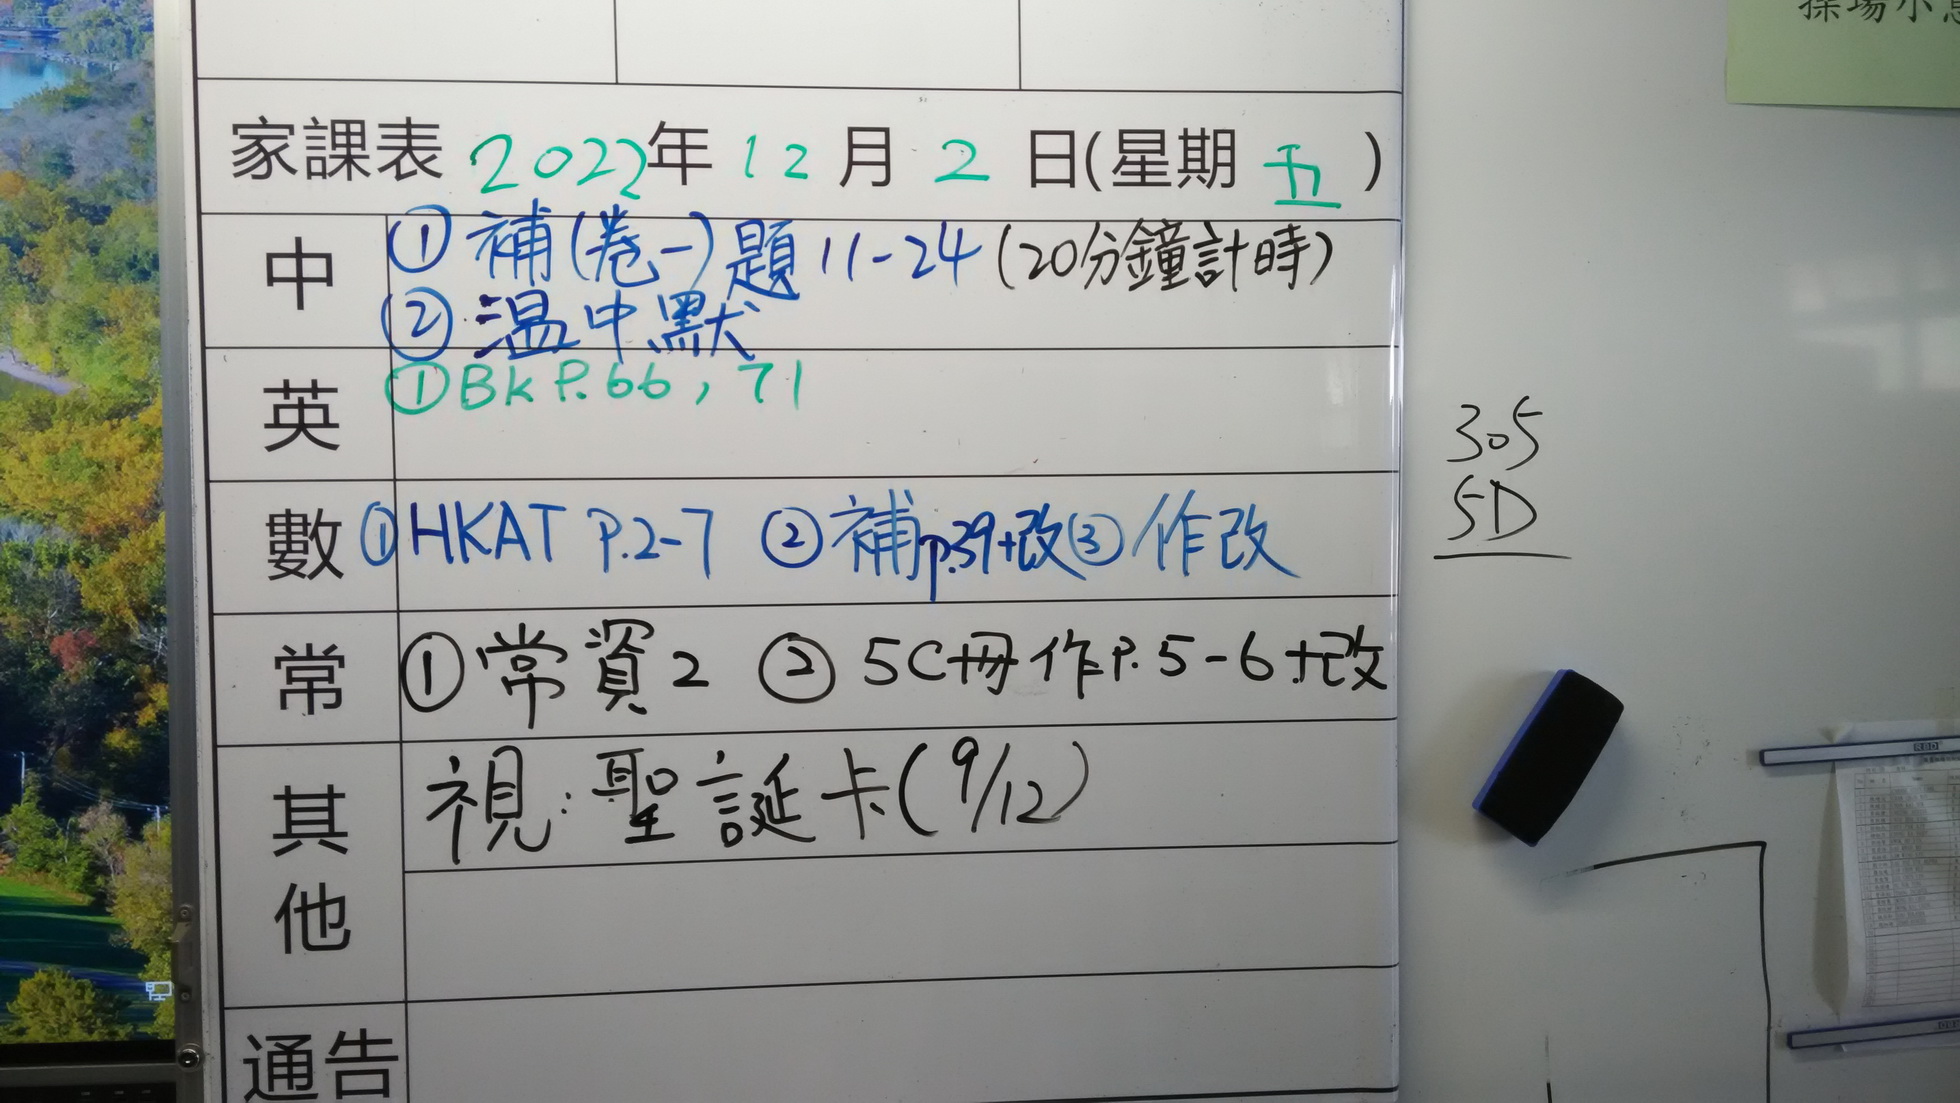 操場小息
家課表 2022年 12 月 2 日(星期 五 )
中 ① 補(卷一)題 11-24 (20分鐘計時)
② 溫中默
英 ① BK P.66, 71
305
5D
數 ① HKAT P.2-7 ② 補p.39+改 ③ 作改
常 ① 常資2 ② 5C冊作P.5-6+改
其他 視:聖誕卡(9/12)
通告